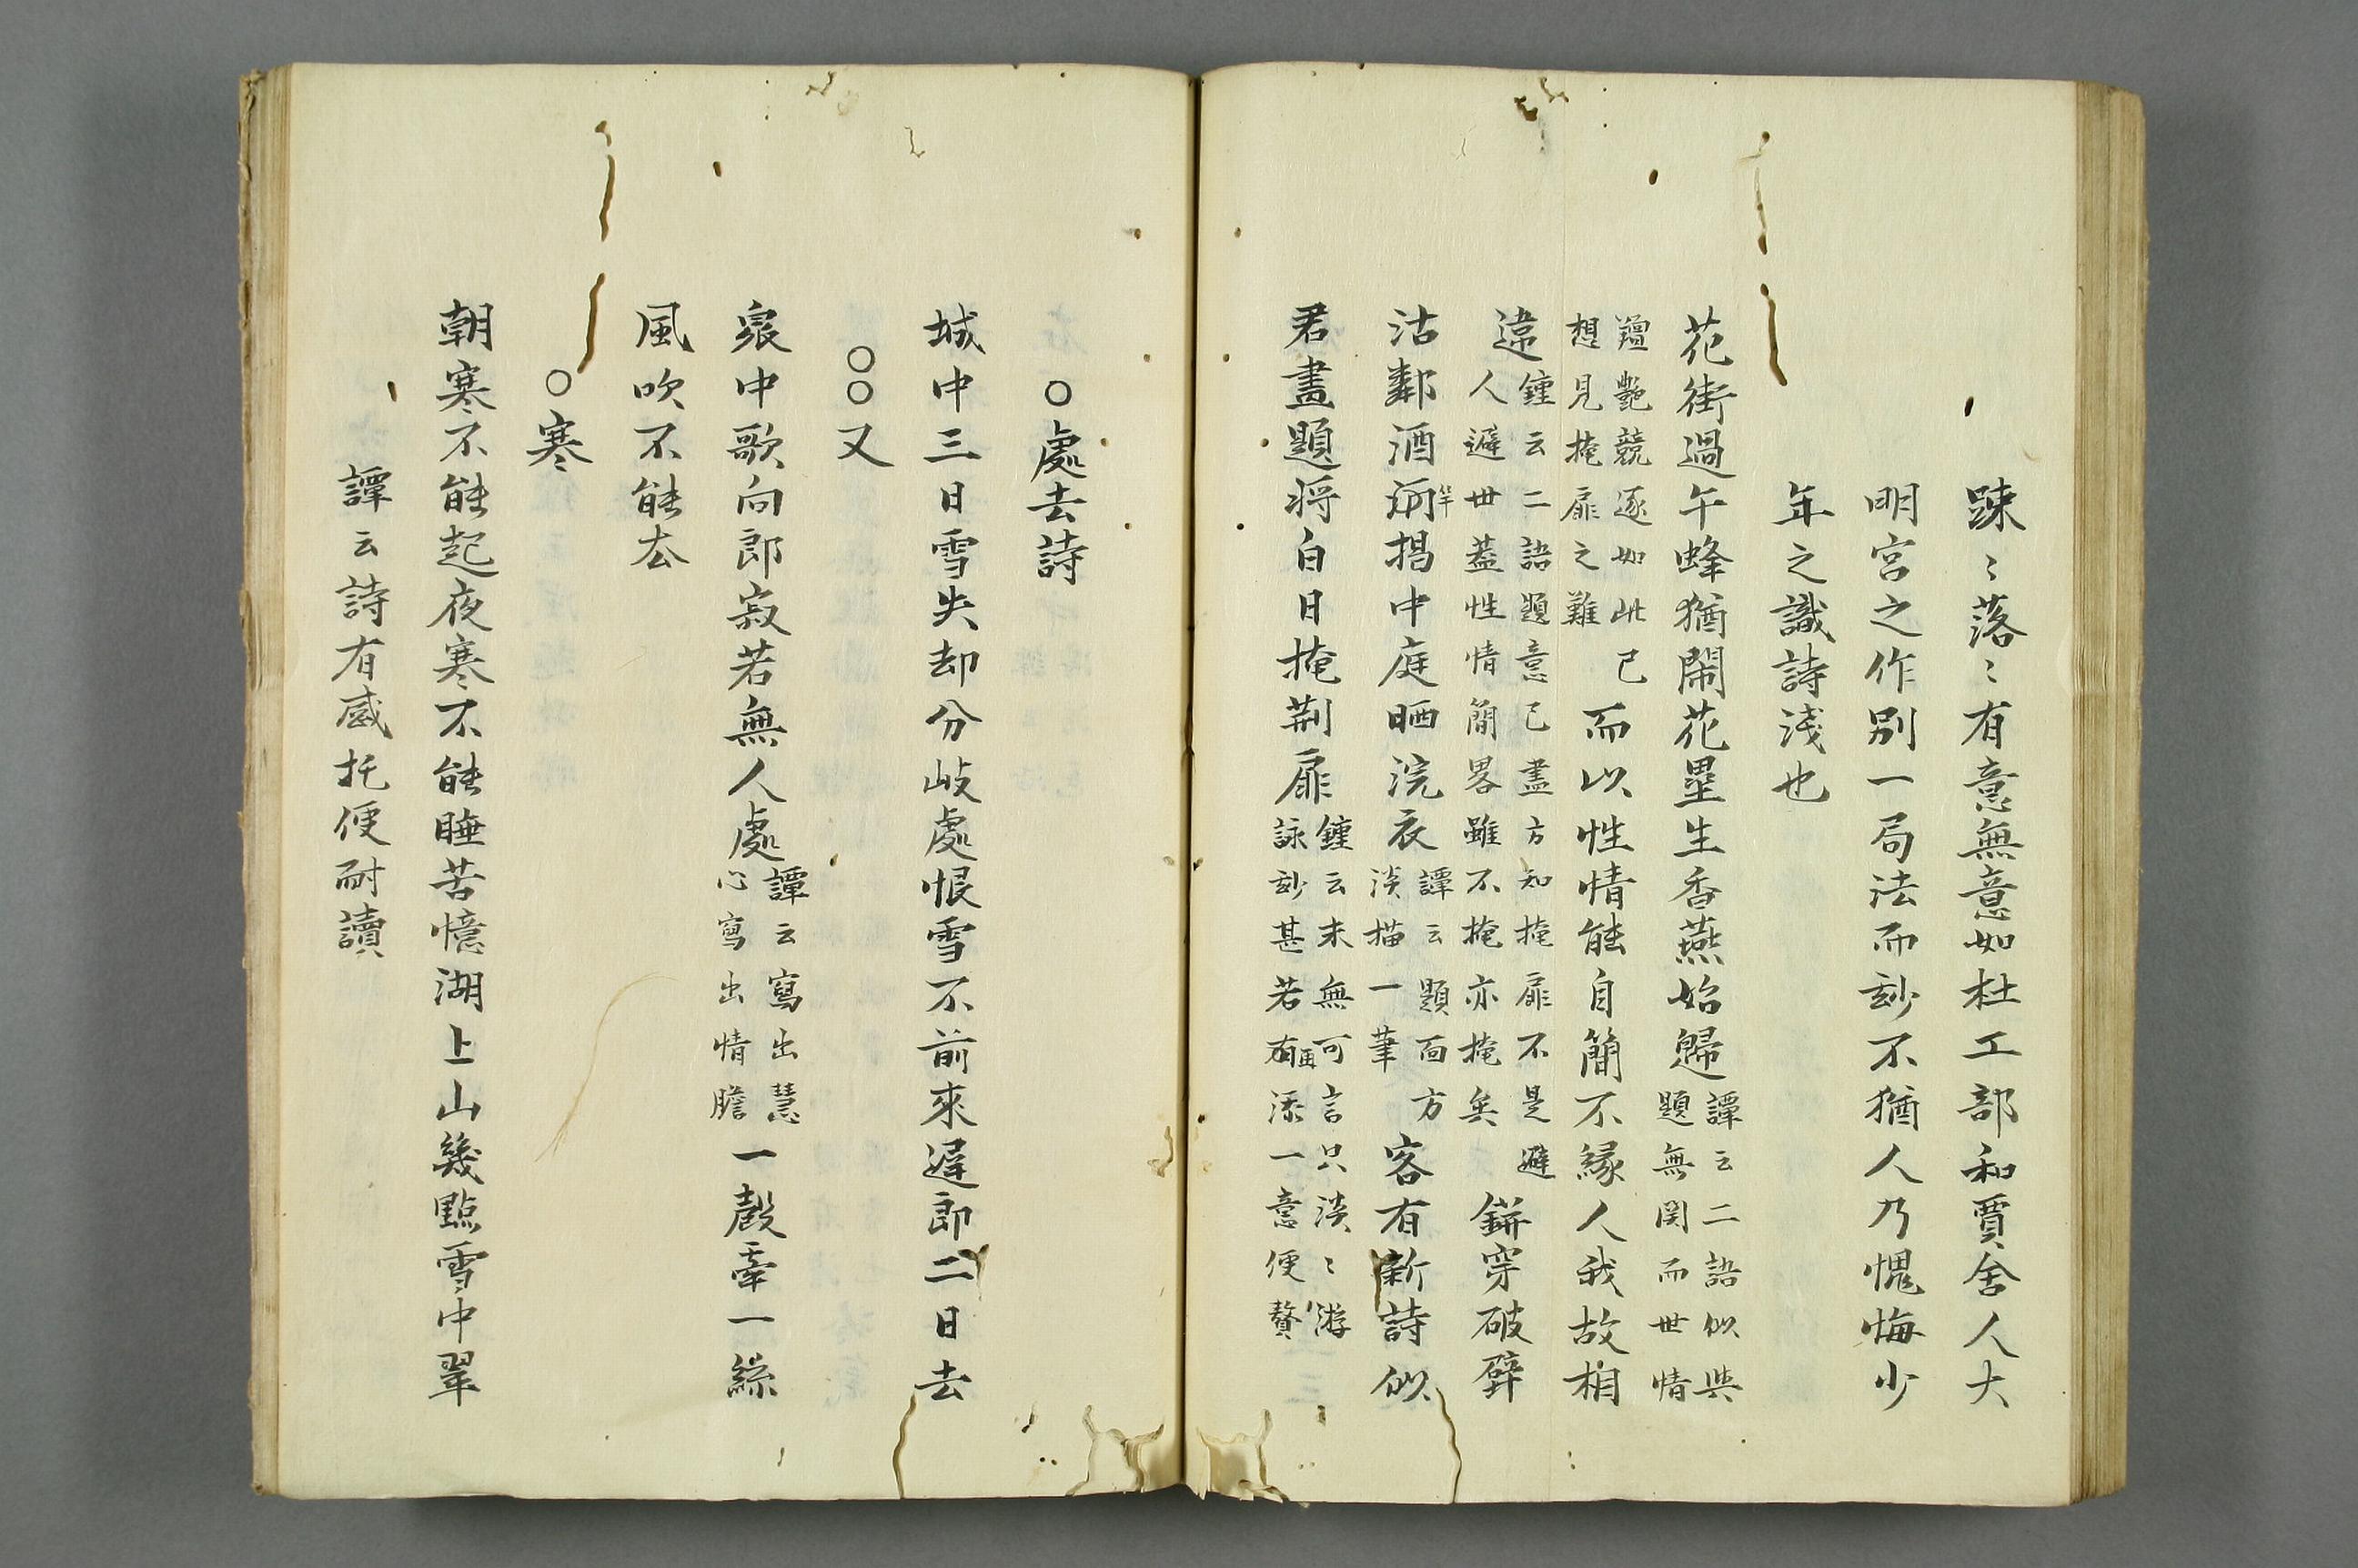 踈〻落〻有意無意如杜工部和賈舍人大
明宮之作別一局法而玅不猶人乃愧悔少
年之識詩淺也
花街過午蜂猶鬧花壘生香燕始歸
譚云二語似與
題無関而世情
羶艶競逐如此已
想見掩扉之難
而以性情能自簡不縁人我故相
違
鍾云二語題意已盡方知掩扉不是避
人避世葢性情簡畧雖不掩亦掩矣
鉼穿破壁
沽鄰酒竿揭中庭晒浣衣
譚云題面方
淡描一筆
客有新詩似
君盡題将白日掩荆扉
鍾云末無可言只淡〻游
詠玅甚若有再添一意便贅
○處去詩
城中三日雪失却分岐處恨雪不前來遲郎二日去
○○又
衆中歌向郎寂若無人處
譚云寫出慧
心寫出情膽
一聲牽一絲
風吹不能去
○寒
朝寒不能起夜寒不能睡苦憶湖上山幾點雪中翠
譚云詩有感托便耐讀